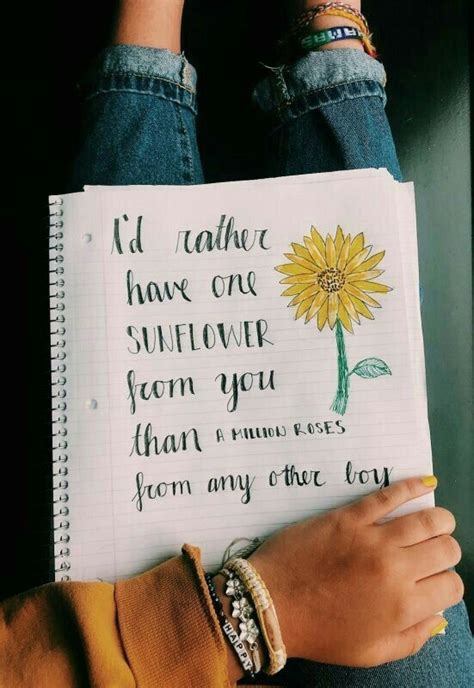 I'd rather
have one
SUNFLOWER
from you
than A MILLION ROSES
from any other boy
HAPPY